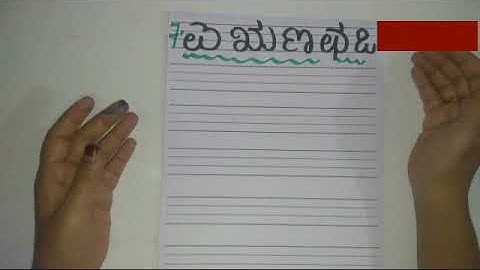 7 ಋ ಣ ಛ ಒ